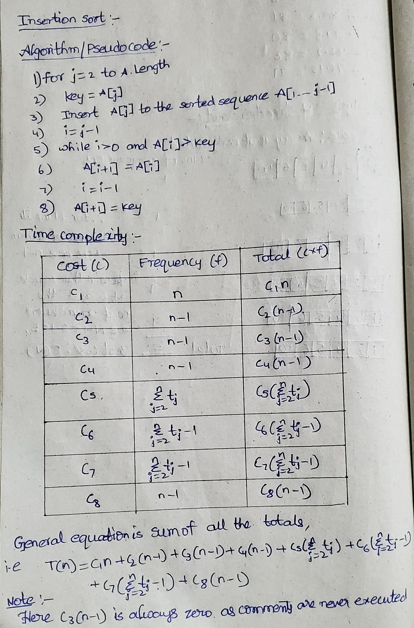 Insertion sort :-
Algorithm/Pseudocode:-
1) for j=2 to A.length
2) key = A[j]
3) Insert A[j] to the sorted sequence A[1...j-1]
4) i=j-1
5) while i>0 and A[i]>key
6) A[i+1] = A[i]
7) i=i-1
8) A[i+1] = key
Time complexity :-
Cost (c) Frequency (f) Total (c*f)
C₁ n C₁n
C₂ n-1 C₂(n-1)
C₃ n-1 C₃(n-1)
C₄ n-1 C₄(n-1)
C₅. ∑ⁿⱼ₌₂ tⱼ C₅(∑ⁿⱼ₌₂ tⱼ)
C₆ ∑ⁿⱼ₌₂ tⱼ-1 C₆(∑ⁿⱼ₌₂ tⱼ-1)
C₇ ∑ⁿⱼ₌₂ tⱼ-1 C₇(∑ⁿⱼ₌₂ tⱼ-1)
C₈ n-1 C₈(n-1)
General equation is sum of all the totals,
i.e T(n)=C₁n+C₂(n-1)+C₃(n-1)+C₄(n-1)+C₅(∑ⁿⱼ₌₂ tⱼ)+C₆(∑ⁿⱼ₌₂ tⱼ-1)
+C₇(∑ⁿⱼ₌₂ tⱼ-1)+C₈(n-1)
Note :-
Here C₃(n-1) is always zero as comments are never executed